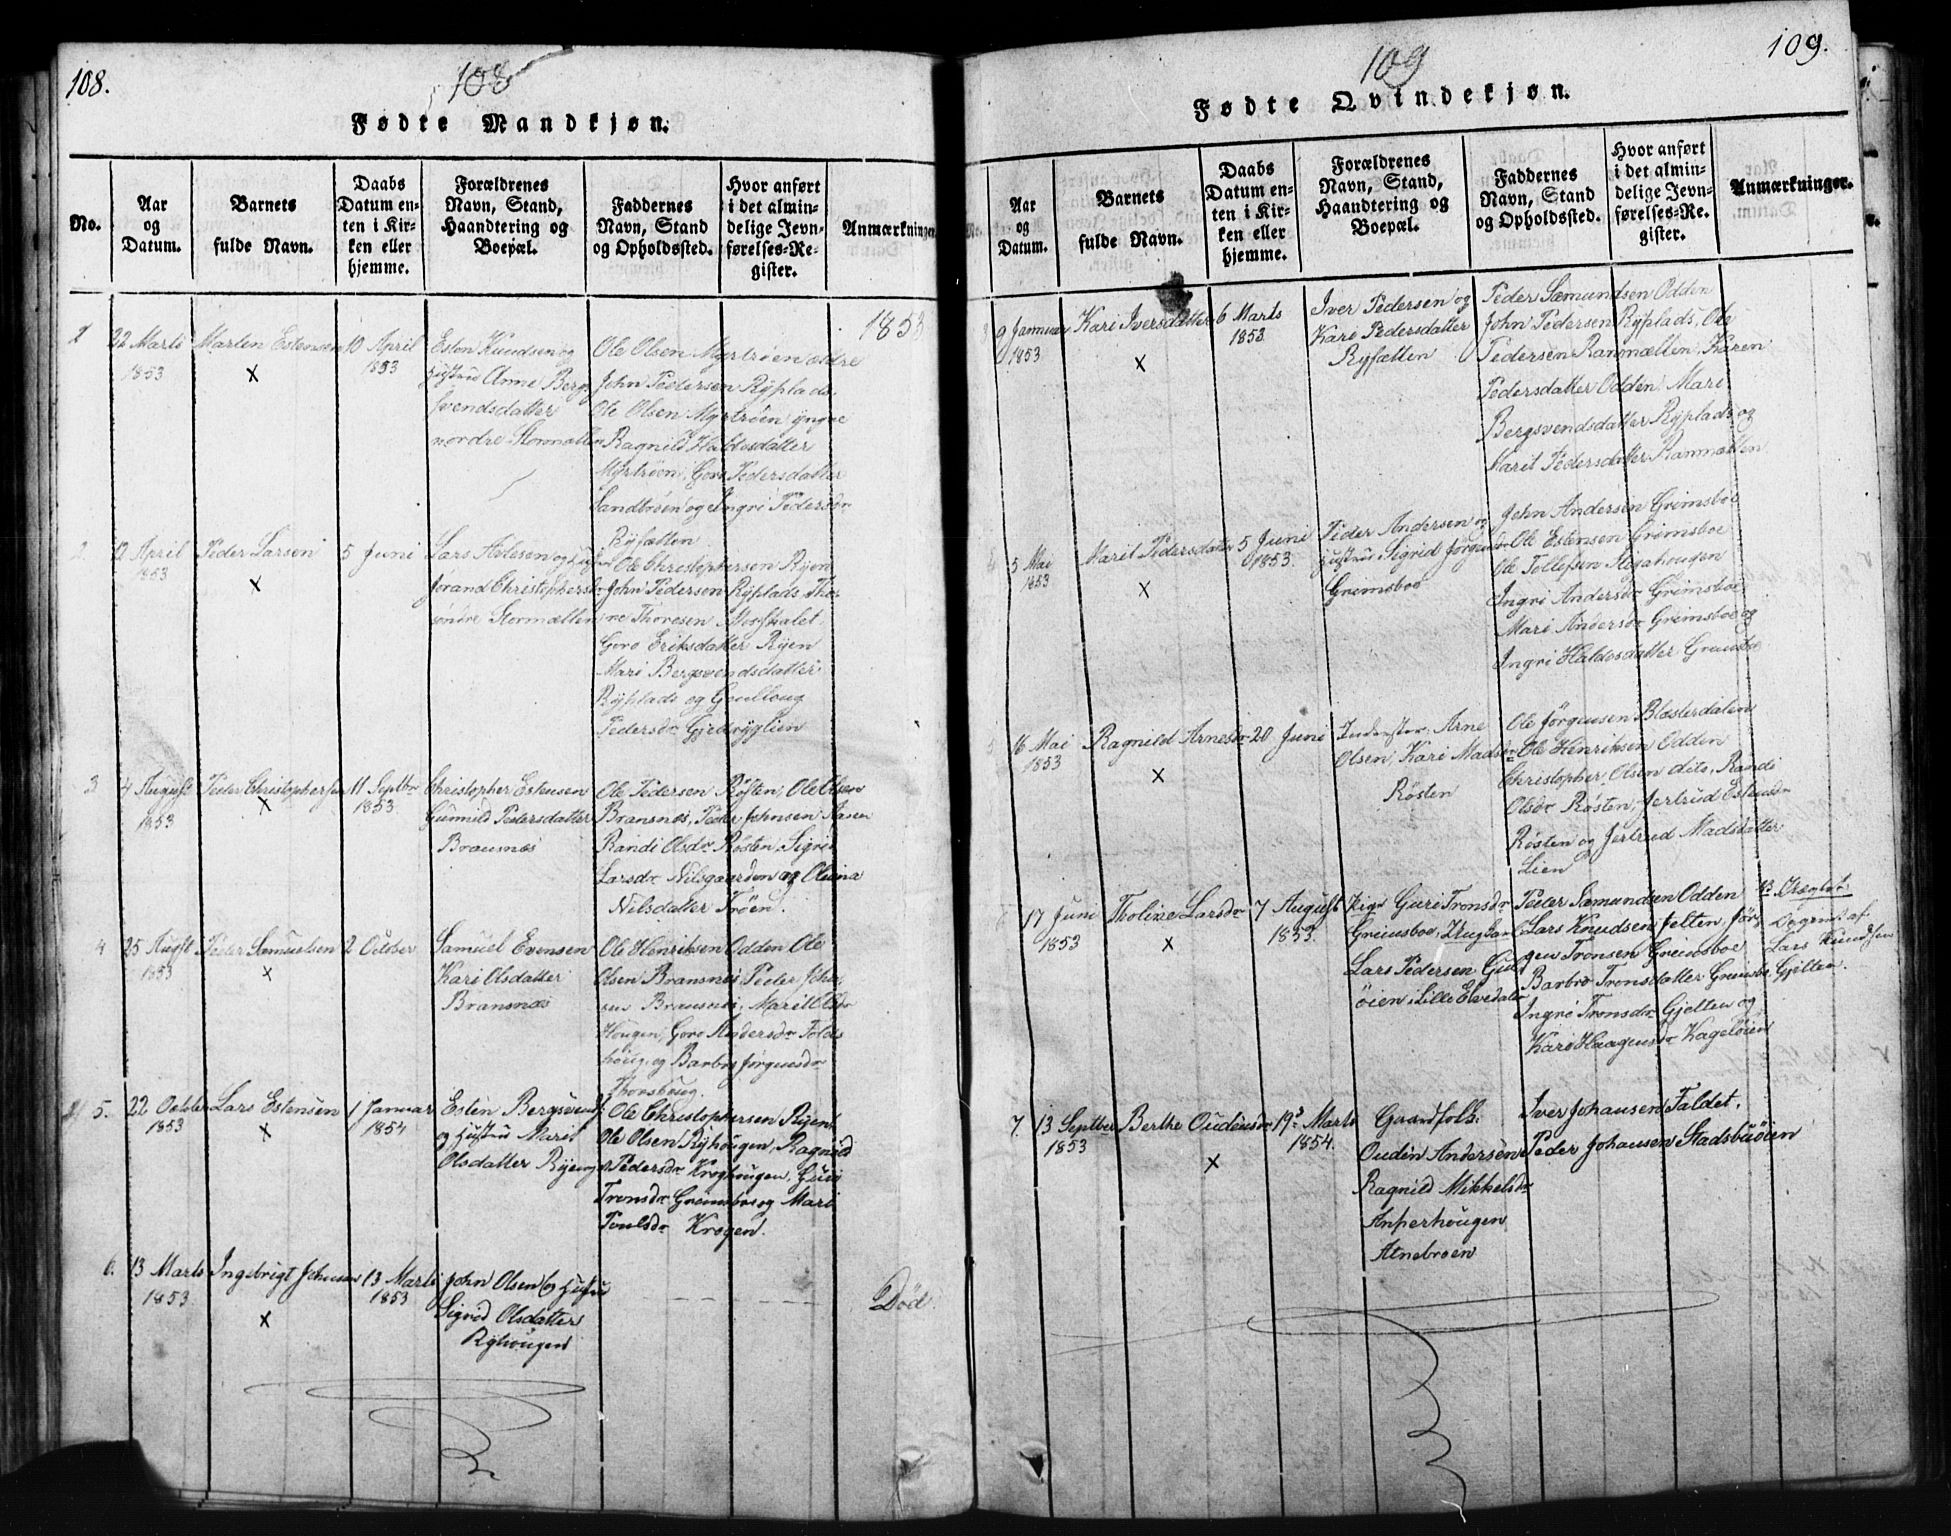 108.
108
Fødte Mandkjøn.
No.
Aar og Datum.
Barnets fulde Navn.
Daabs Datum enten i Kirken eller hjemme.
Forældrenes Navn, Stand, Haandtering og Boepæl.
Faddernes Navn, Stand og Opholdssted.
Hvor anført i det almindelige Jevnførelses-Register.
Anmærkninger
1853
22 Marts
1853
Marten Estensen
×
10 April
1853
Esten Knudsen og
Hustru Anne Berg-
svendsdatter
nordre Stormætten
Ole Olsen Myrtrøen ældre
John Pedersen Ryplads
Ole Olsen Myrtrøen yngre
Ragnild Haldosdatter
Myrtrøen, Goro Pedersdatter
Sandtrøen og Ingri Pedersdr
Ryfætten
2
12 April
1853
Peder Larsen
×
5 Juni
Jørand Christophersdr
søndre Stormætten
Ole Christophersen Ryen
John Pedersen Ryplads Tho-
re Thoresen Mosshalet
Goro Eriksdatter Ryen
Mari Bergsvendsdatter
Ryplads og Gunlloug
Pedersdr Gjedryglien
3
4 August
1853
Peder Christophersen
×
11 Septbr
1853
Christopher Estensen
Gunnild Pedersdatter
Bransnes
Ole Pedersen Røsten, Ole Olsen
Bransnes, Peder Johnsen
Randi Olsdr Røsten, Sigri
Larsdr Nilsgaarden og Oliana
Nilsdatter Trøen.
4
25 Augst
1853
Peder Samuelsen
×
2 October
Samuel Evensen
Kari Olsdatter
Bransnes
Ole Henriksen Odden Ole
Olsen Bransnes Peder John-
sen Bransnes, Marit Olsdr
Hougen, Goro Andersdr
houg og Barbro Jørgensdr
5.
22 October
1853
Lars Estensen
×
1 Januar
1854
Esten Bergsvends
og Hustru Marit
Olsdatter Ryeng
Ole Christophersen Ryen
Ole Olsen Ryhougen, Ragnild
Pedersdr Kroghougen, Guri
Tronsdr Grimsboe og Mari
Poulsdr Krogen.
6.
13 Marts
1853
Ingebrigt Johnsen
×
13 Marts
1853
John Olsen og Hustru
Sigrid Olsdatter
Ryhougen
Død.
109
109.
Fødte Qvindekjøn.
Aar og Datum.
Barnets fulde Navn.
Daabs Datum enten i Kirken eller hjemme.
Forældrenes Navn, Stand, Haandtering og Boepæl.
Faddernes Navn, Stand og Opholdssted.
Hvor anført i det almindelige Jevnførelses-Register.
Anmærkninger.
9 Januar
1853
Kari Iversdatter
×
6 Marts
1853
Iver Pedersen og
Kari Pedersdatter
Ryfætten
Peder Sæmundsen Odden
John Pedersen Ryplads, Ole
Pedersen Ranmætten, Karen
Pedersdatter Odden Mari
Bergsvendsdatter Ryplads og
Marit Pedersdatter Ranmætten
5 Mai
1853
Marit Pedersdatter
×
5 Juni
1853.
Peder Andersen og
Hustru Sigrid Jørgensdr
Grimsboe
John Andersen Grimsboe
Ole Estensen Grimsboe
Ole Tollefsen Stejahougen
Ingri Andersdr Grimsboe
Mari Andersdr Grimsboe og
Ingri Haldosdatter Grimsboe
5
16 Mai
1853
Ragnild Arnesdr
×
20 Juni
Inderster Arne
Olsen, Kari Madsdr
Røsten
Ole Jørgensen Blæsterdalen
Ole Henriksen Odden
Christopher Olsen dito, Randi
Olsdr Røsten, Jertrud Estensdr
Røsten og Jertrud Madsdatter
Lien
17 Juni
1853
Tholine Larsdr
×
7 August
1853.
Pige Guri Tronsdr
Grimsboe, Ungkarl
Lars Pedersen
øien i Lille Elvedalen
Peder Sæmundsen Odden
Lars Knudsen Jelten, Jør-
gen Tronsen Grimsboe
Barbro Tronsdatter Grimsbo
Ingri Tronsdr Gjelten og
Kari Haagensdr Kageløien
Lars Knudsen
Gjelten.
7.
13 Septber
1853
Berthe Oudensdr
×
19de Marts
1854.
Gaardfolk:
Ouden Andersen
Ragnild Mikkelsdr
Anperhougen
Atnebroen
Iver Johansen Faldet,
Peder Johansen Stadsbuøien